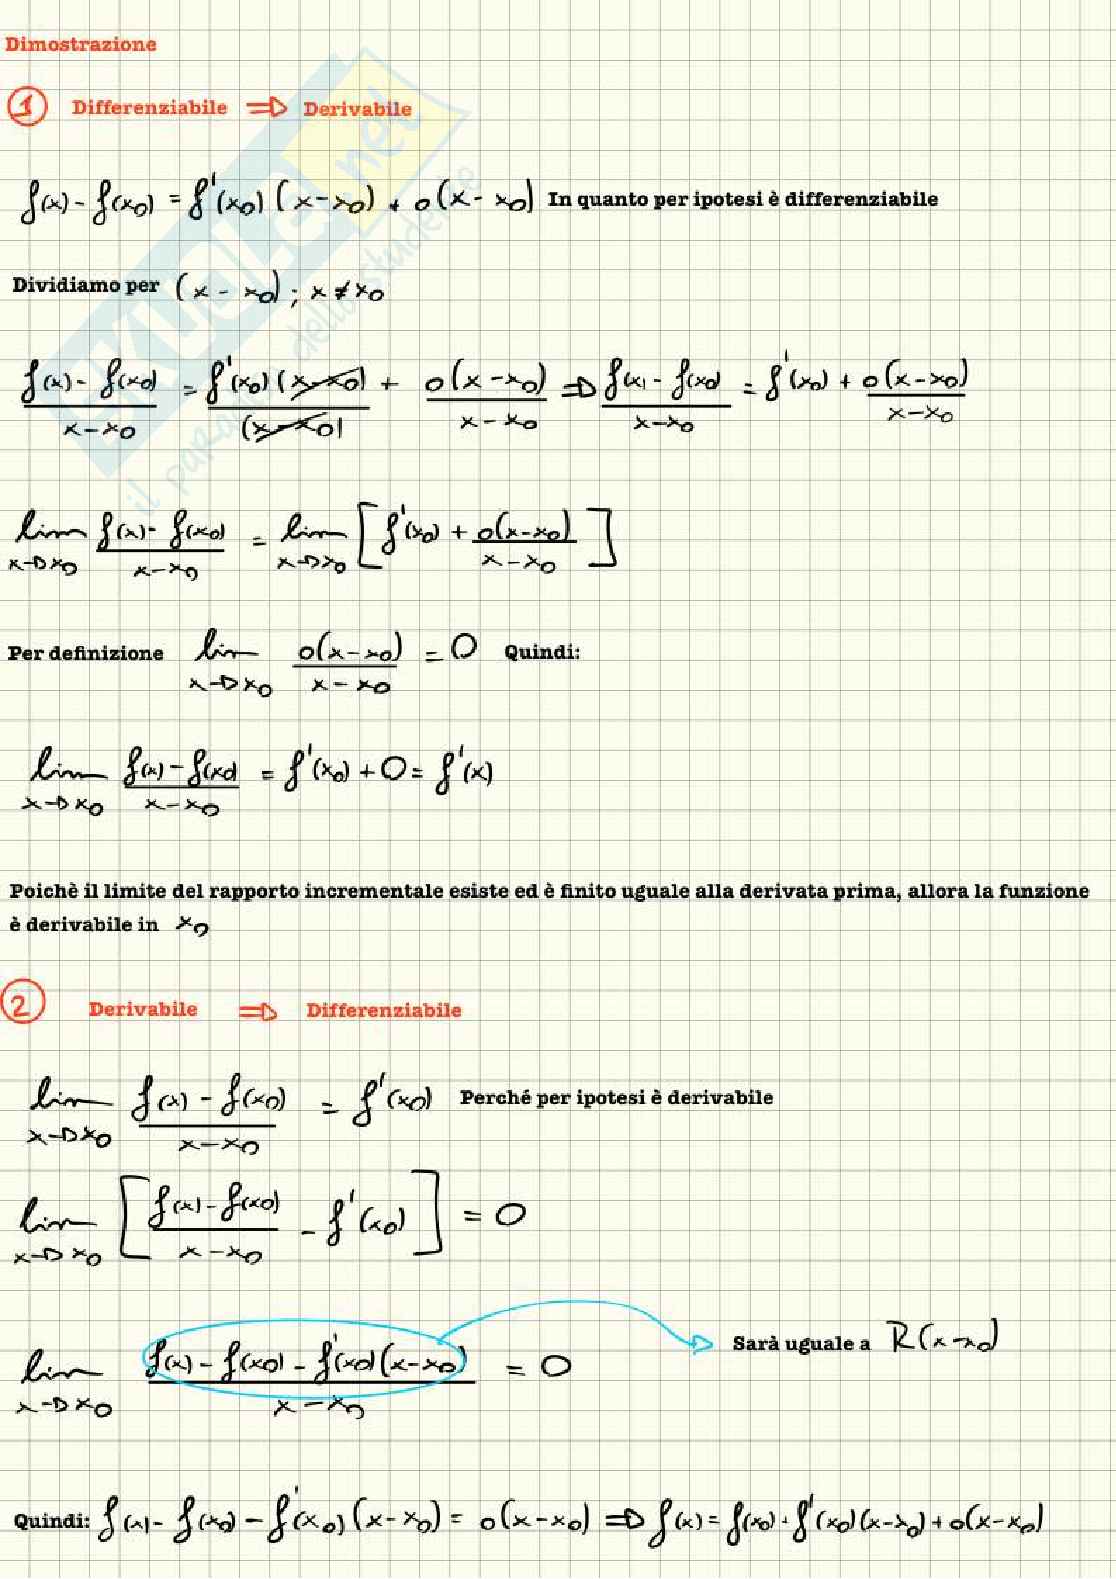 Dimostrazione
1 Differenziabile ⇒ Derivabile
f(x) - f(x0) = f'(x0) (x-x0) + o(x-x0) In quanto per ipotesi è differenziabile
Dividiamo per (x-x0) ; x≠x0
(f(x) - f(x0))/(x-x0) = (f'(x0)(x-x0))/(x-x0) + o(x-x0)/(x-x0) ⇒ (f(x) - f(x0))/(x-x0) = f'(x0) + o(x-x0)/(x-x0)
lim x→x0 (f(x) - f(x0))/(x-x0) = lim x→x0 [f'(x0) + o(x-x0)/(x-x0)]
Per definizione lim x→x0 o(x-x0)/(x-x0) = 0 Quindi:
lim x→x0 (f(x) - f(x0))/(x-x0) = f'(x0) + 0 = f'(x)
Poichè il limite del rapporto incrementale esiste ed è finito uguale alla derivata prima, allora la funzione
è derivabile in x0
2 Derivabile ⇒ Differenziabile
lim x→x0 (f(x) - f(x0))/(x-x0) = f'(x0) Perché per ipotesi è derivabile
lim x→x0 [(f(x) - f(x0))/(x-x0) - f'(x0)] = 0
lim x→x0 (f(x) - f(x0) - f'(x0)(x-x0))/(x-x0) = 0 → Sarà uguale a R(x-x0)
Quindi: f(x) - f(x0) - f'(x0)(x-x0) = o(x-x0) ⇒ f(x) = f(x0) + f'(x0)(x-x0) + o(x-x0)
SKUOLA.net
il paradiso dello studente